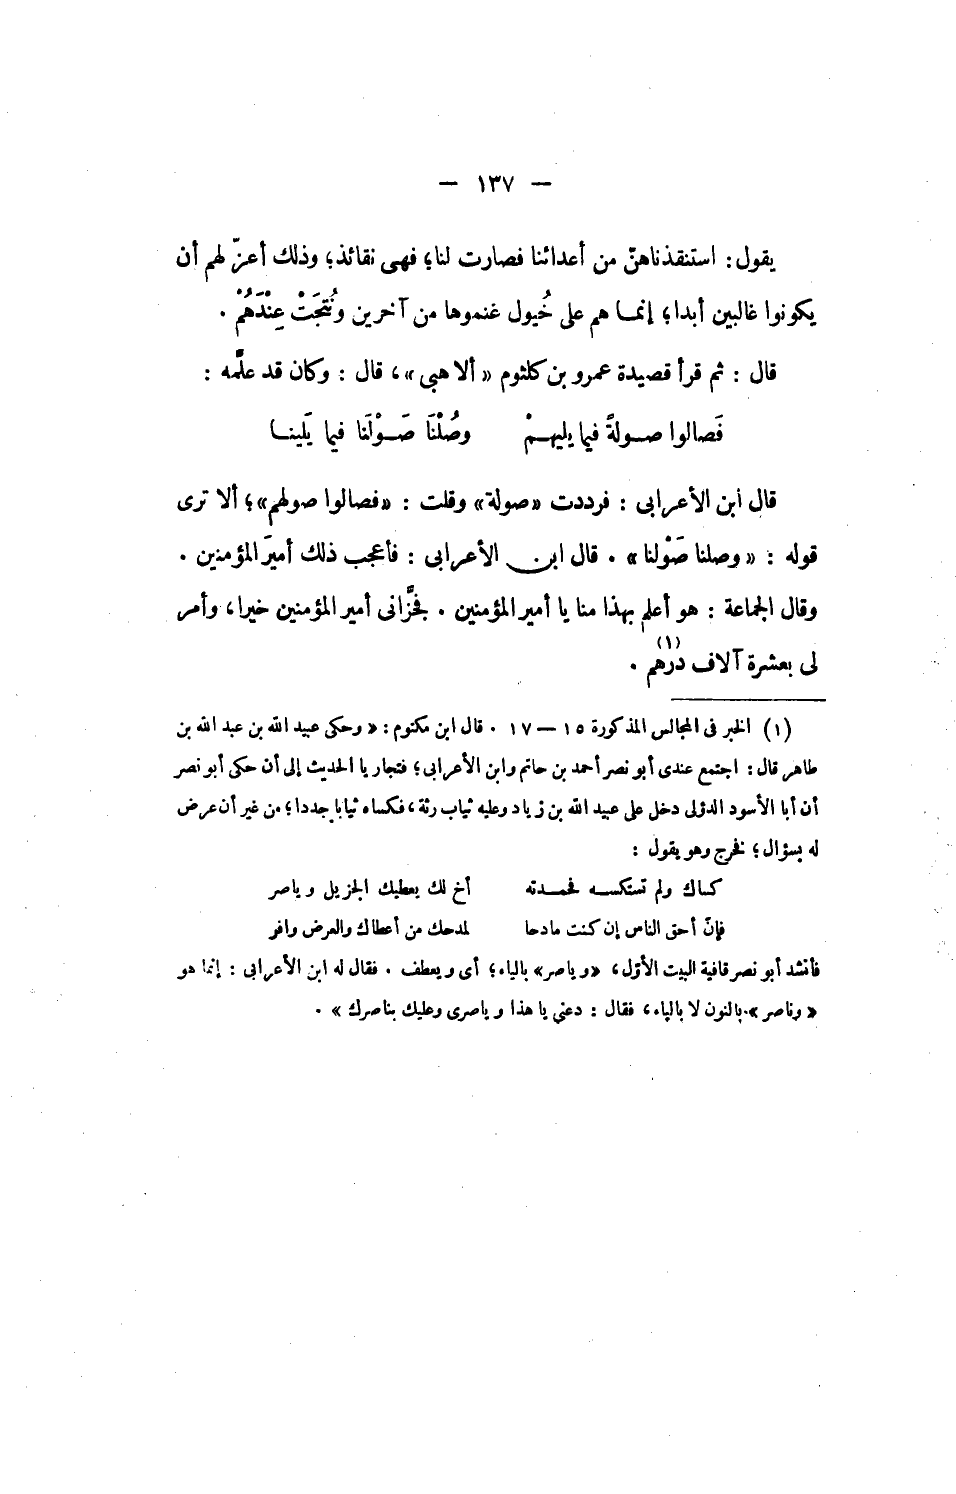 — ١٣٧ —
يقول: استنقذناهنّ من أعدائنا فصارت لنا؛ فهى نقائذ؛ وذلك أعزّ لهم أن
يكونوا غالبين أبدا؛ إنمـا هم على خُيول غنموها من آخرين ونُتجَتْ عِنْدَهُمْ .
قال : ثم قرأ قصيدة عمرو بن كلثوم «ألا هبى»، قال : وكان قد علَّمه :
فَصالوا صـولةً فيما يليهـمْ وصُلْنَا صَـوْلَنَا فيما يَلينـا
قال ابن الأعرابى : فرددت «صولة» وقلت : «فصالوا صولهم»؛ ألا ترى
قوله : «وصلنا صَوْلنا» . قال ابن الأعرابى : فأعجب ذلك أميرَ المؤمنين .
وقال الجماعة : هو أعلم بهذا منا يا أمير المؤمنين . فجزَّانى أمير المؤمنين خيرا، وأمر
لى بعشرة آلاف درهم (١) .
(١) الخبر فى المجالس المذكورة ١٥ — ١٧ . قال ابن مكتوم: «وحكى عبيد الله بن عبد الله بن
طاهر قال: اجتمع عندى أبو نصر أحمد بن حاتم وابن الأعرابى؛ فتجاريا الحديث إلى أن حكى أبو نصر
أن أبا الأسود الدؤلى دخل على عبيد الله بن زياد وعليه ثياب رثة، فكساه ثيابا جددا؛ من غير أن عرض
له بسؤال؛ فخرج وهو يقول :
كساك ولم تستكسـه فحمـدته أخ لك يعطيك الجزيل وياصر
فإنّ أحق الناس إن كنت مادحا لمدحك من أعطاك والعرض وافر
فأنشد أبو نصر قافية البيت الأوّل، «وياصر» بالياء؛ أى ويعطف . فقال له ابن الأعرابى : إنما هو
«وناصر» بالنون لا بالياء، فقال : دعنى يا هذا وياصرى وعليك بناصرك» .